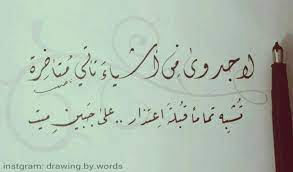 لا جدوى من أشياء تأتي متأخرة
تشبه تماماً قبلة اعتذار .. على جبين ميت
instgram: drawing.by.words